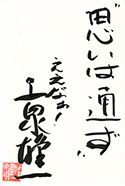 ”思いは通ず”
ええなぁ！
上泉雄一